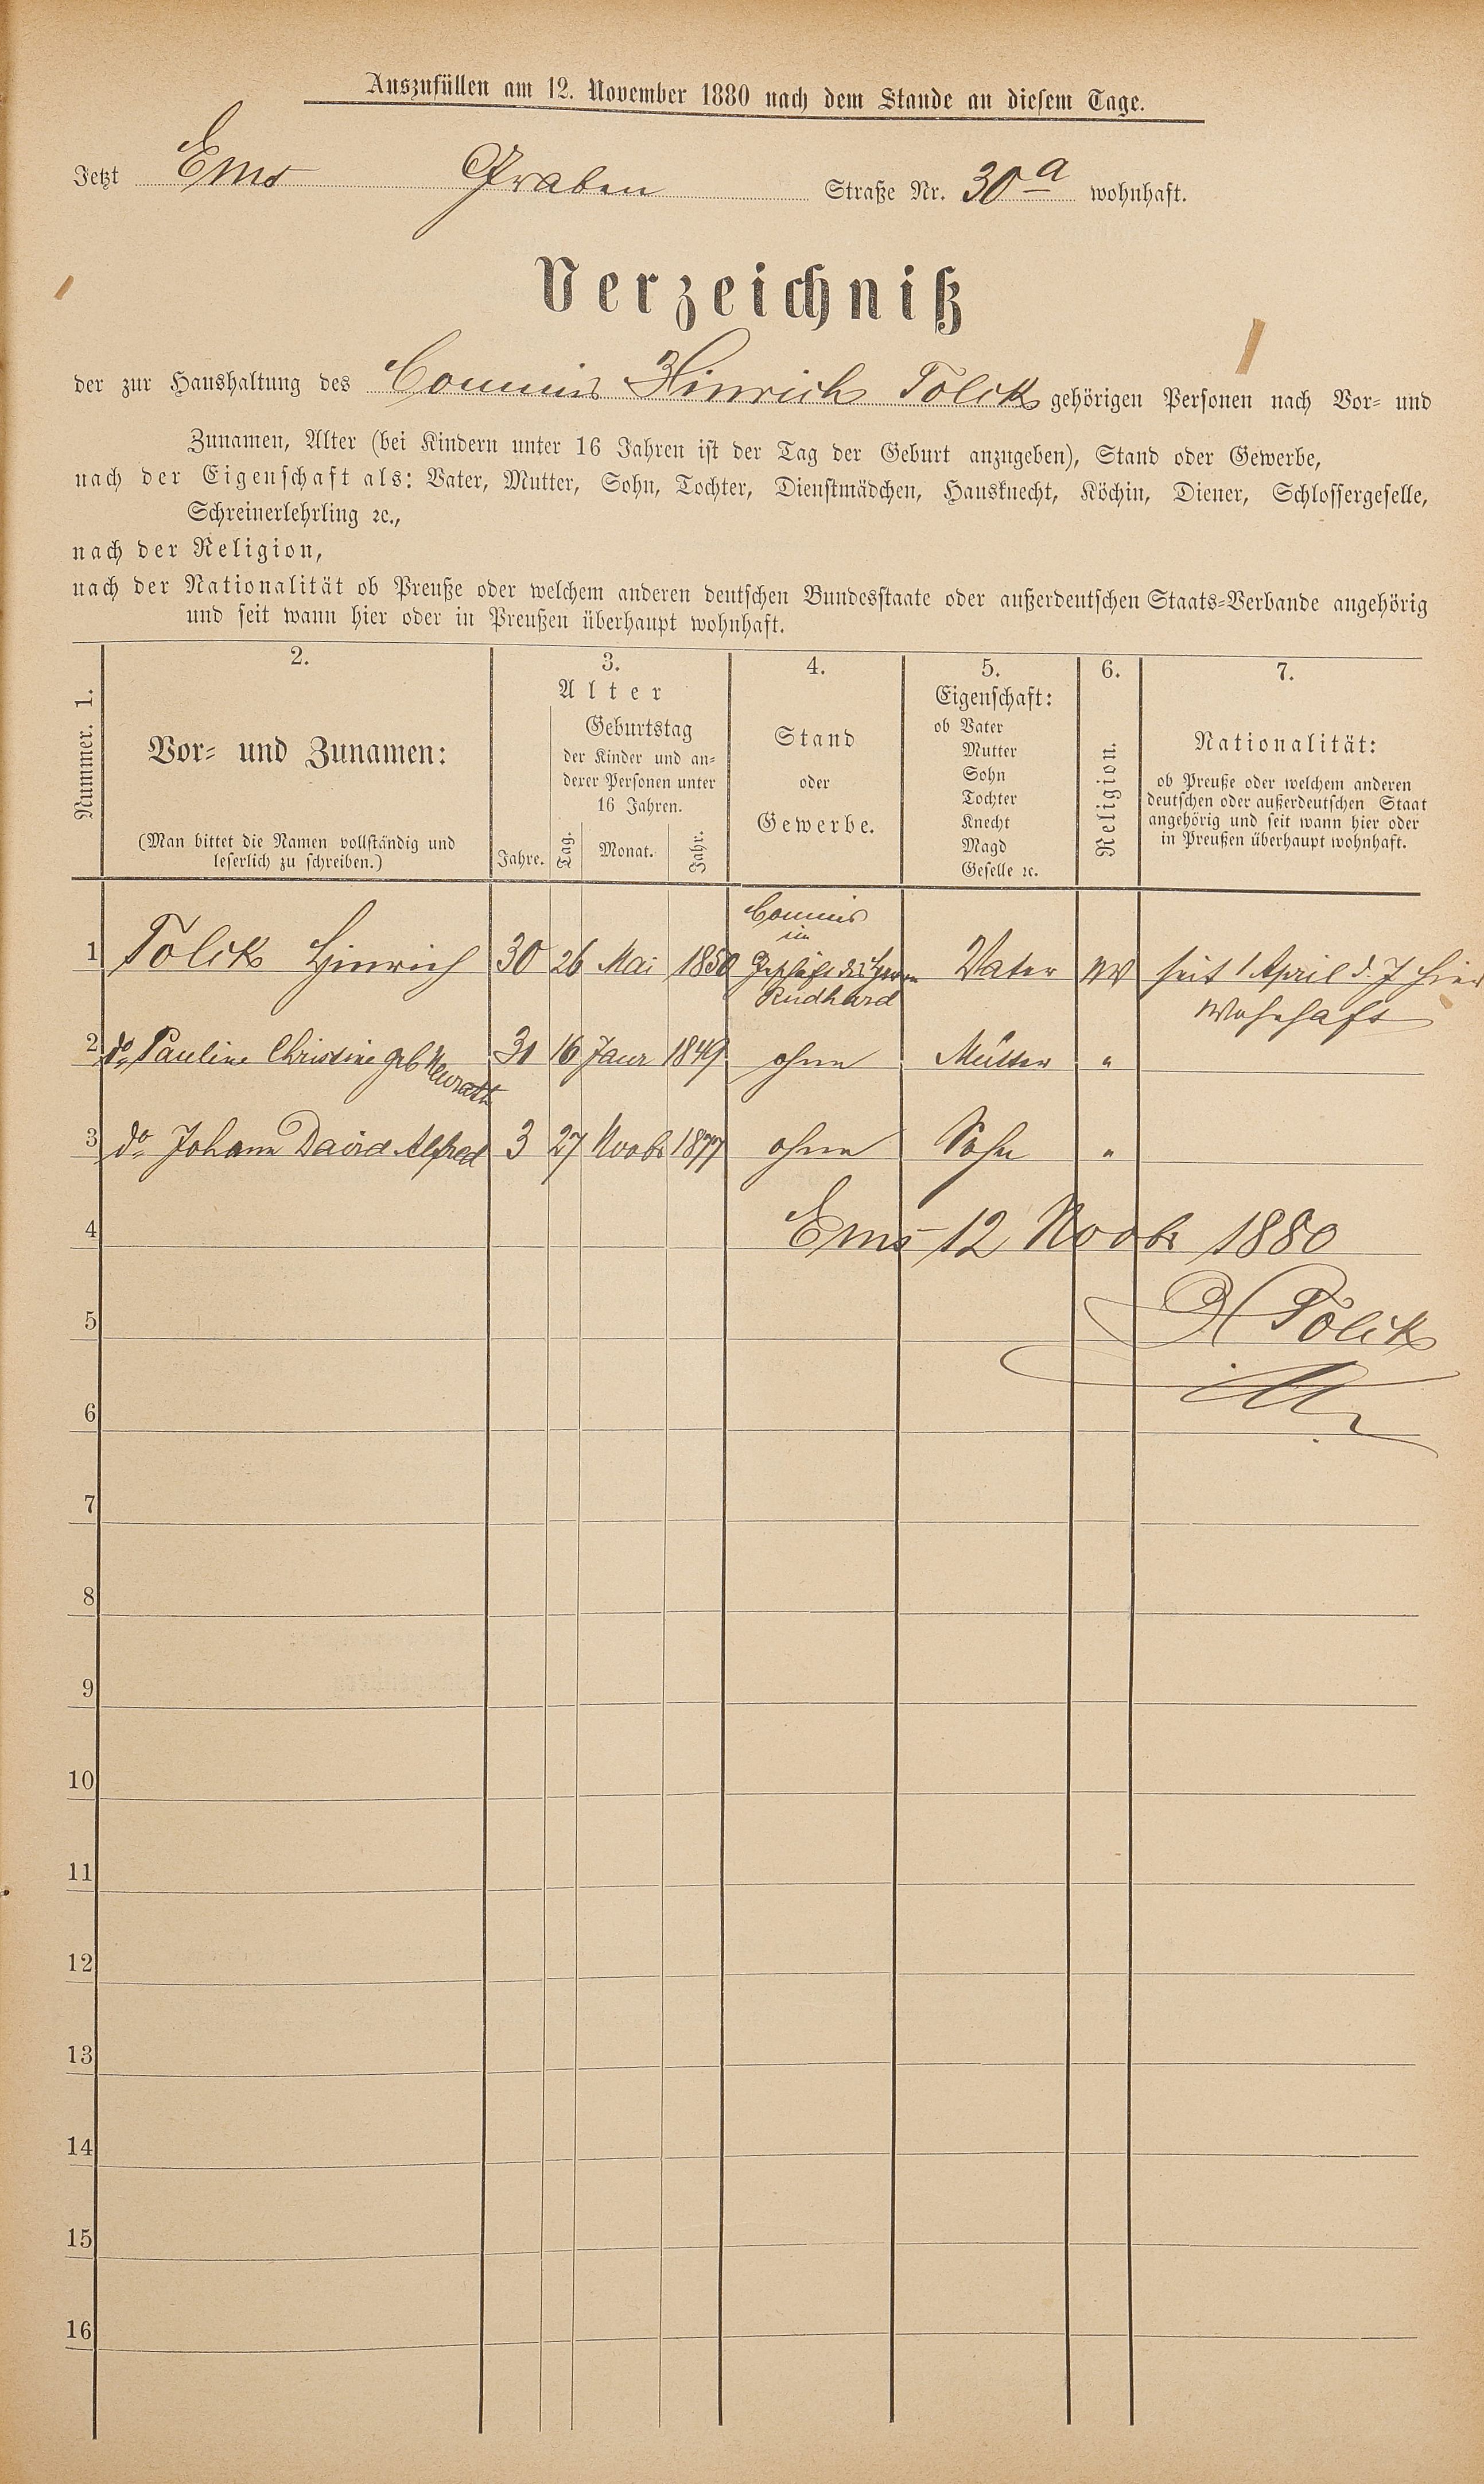 Auszufüllen am 12. November 1880 nach dem Stande an diesem Tage.
Jetzt Ems Graben Straße Nr. 30a wohnhaft.
Verzeichniß
der zur Haushaltung des Commis Hinrich Tolck gehörigen Personen nach Vor- und
Zunamen, Alter (bei Kindern unter 16 Jahren ist der Tag der Geburt anzugeben), Stand oder Gewerbe,
nach der Eigenschaft als: Vater, Mutter, Sohn, Tochter, Dienstmädchen, Hausknecht, Köchin, Diener, Schlossergeselle,
Schreinerlehrling ꝛc.,
nach der Religion,
nach der Nationalität ob Preuße oder welchem anderen deutschen Bundesstaate oder außerdeutschen Staats-Verbande angehörig
und seit wann hier oder in Preußen überhaupt wohnhaft.
Nummer. 1.
2.
Vor- und Zunamen:
(Man bittet die Namen vollständig und
leserlich zu schreiben.)
3.
Alter
Geburtstag
der Kinder und an-
derer Personen unter
16 Jahren.
Jahre. Tag. Monat. Jahr.
4.
Stand
oder
Gewerbe.
5.
Eigenschaft:
ob Vater
Mutter
Sohn
Tochter
Knecht
Magd
Geselle ꝛc.
6.
Religion.
7.
Nationalität:
ob Preuße oder welchem anderen
deutschen oder außerdeutschen Staat
angehörig und seit wann hier oder
in Preußen überhaupt wohnhaft.
Commis
im
1 Tolck Hinrich 30 26 Mai 1850 Geschäft des Herrn Vater seit 1 April d. J hier
Rudhard wohnhaft
2 do Pauline Christine geb Neurath 31 16 Janr 1849 ohne Mutter "
3 do Johann David Alfred 3 27 Novbr 1877 ohne Sohn "
4 Ems 12 Novbr 1880
5 H Tolck
6
7
8
9
10
11
12
13
14
15
16